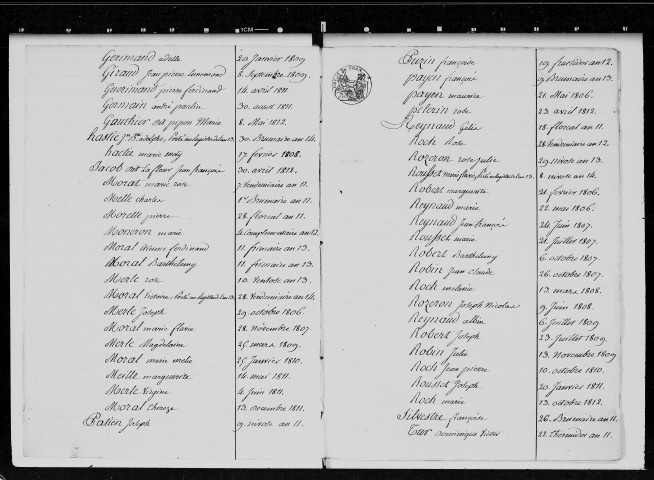 Germand adelle 20 Janvier 1809
Giraud Jean pierre 8. Septembre 1809
Guerimand pierre ferdinand 14. avril 1811.
Germain andré paulin 30. avril 1811.
Gauthier dit pignon Marie 8. Mai 1812.
hastie adolphe, 30. Brumaire an 14.
hastie marie 17. fevrier 1808.
Jacob dit La fleur Jean françois 30. avril 1812.
Moral marie rose 7. Vendemiaire an 11.
Melle charles 1er Brumaire an 11.
Morelle pierre 28. floreal an 11.
Moneron marie 4. Complementaire an 12.
Moral étienne ferdinand 11. frimaire an 13.
Moral Barthelemy 11. frimaire an 13.
Merle rose 10. Ventose an 13.
Moral Victoire, 28. Vendemiaire an 14.
Merle Joseph 29. octobre 1806.
Moral marie flavie 28. Novembre 1807.
Merle Magdelaine 25. mars 1809.
Moral marie melie 25. Janvier 1810.
Meille marguerite 14. mai 1811.
Merle Virginie 4. Juin 1811.
Moral therese 13. decembre 1811.
Patien Joseph 9. nivose an 11.
Puzin françoise 19. fructidor an 12.
payen françois 9. Brumaire an 13.
payen maurice 21. Mai 1806.
pelerin rose 23. avril 1812.
Reynaud felix 18. floreal an 11.
Roch Rose 28. Vendemiaire an 12.
Rozeron rose Julie 29. nivose an 13.
Rousset marie flavie, 8. nivose an 14.
Robert marguerite 21. fevrier 1806.
Reynaud marie 22. mai 1806.
Reynaud Jean françois 24. Juin 1807.
Rousset marie 21. Juillet 1807.
Robert Barthelemy 6. octobre 1807.
Robin Jean Claude 26. octobre 1807.
Roch melanie 13. mars 1808.
Rozeron Joseph Nicolas 9. Juin 1808.
Reynaud albin 6. Juillet 1809
Robert Joseph 23. Juillet 1809.
Robin Julie 13. Novembre 1809
Roch Jean pierre 10. octobre 1810.
Rousset Joseph 20. Janvier 1811.
Roch marie 13. octobre 1812.
Silvestre françoise 26. Brumaire an 11.
Tur Dominique Victor 22. thermidor an 11.